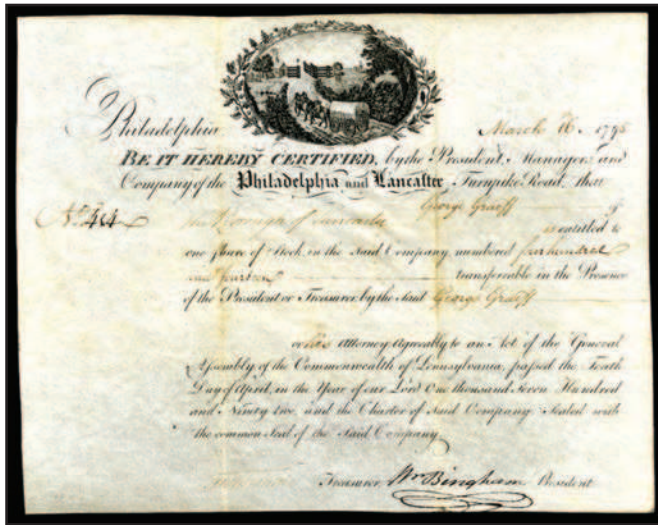 Philadelphia March 16. 1795
BE IT HEREBY CERTIFIED, by the President, Managers and
Company of the Philadelphia and Lancaster Turnpike Road, that
George Graeff of
No. 414 the Borough of Lancaster
is entitled to
one Share of Stock in the Said Company, numbered four hundred
and fourteen transferable in the Presence
of the President or Treasurer by the said George Graeff
or his Attorney Agreeably to an Act of the General
Assembly of the Commonwealth of Pennsylvania, passed the Tenth
Day of April, in the Year of our Lord One thousand Seven Hundred
and Ninety two, and the Charter of Said Company Sealed with
the common Seal of the Said Company.
Treasurer, Wm Bingham President